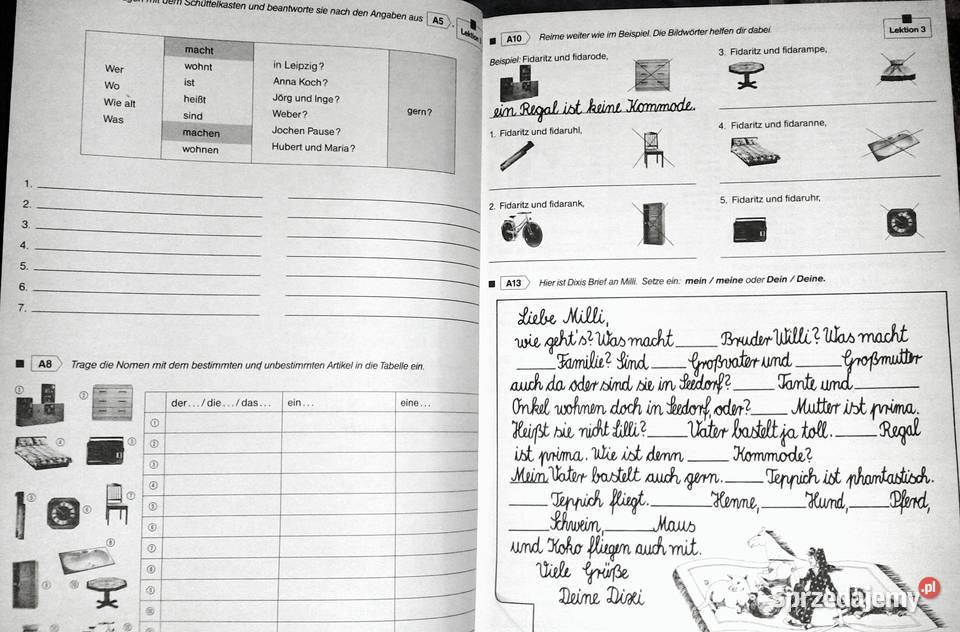 mit dem Schüttelkasten und beantworte sie nach den Angaben aus A5.
Lektion
macht
Wer wohnt in Leipzig?
Wo ist Anna Koch?
Wie alt heißt Jörg und Inge?
Was sind Weber? gern?
machen Jochen Pause?
wohnen Hubert und Maria?
1.
2.
3.
4.
5.
6.
7.
A8 Trage die Nomen mit dem bestimmten und unbestimmten Artikel in die Tabelle ein.
der.../die.../das... ein... eine...
1
2
3
4
5
6
7
8
9
10
Lektion 3
A10 Reime weiter wie im Beispiel. Die Bildwörter helfen dir dabei.
Beispiel: Fidaritz und fidarode,
ein Regal ist keine Kommode.
1. Fidaritz und fidaruhl,
2. Fidaritz und fidarank,
3. Fidaritz und fidarampe,
4. Fidaritz und fidaranne,
5. Fidaritz und fidaruhr,
A13 Hier ist Dixis Brief an Milli. Setze ein: mein / meine oder Dein / Deine.
Liebe Milli,
wie geht's? Was macht ______ Bruder Willi? Was macht
______ Familie? Sind ______ Großvater und ______ Großmutter
auch da oder sind sie in Seedorf? ______ Tante und ______
Onkel wohnen doch in Seedorf, oder? ______ Mutter ist prima.
Heißt sie nicht Lilli? ______ Vater bastelt ja toll. ______ Regal
ist prima. Wie ist denn ______ Kommode?
Mein Vater bastelt auch gern. ______ Teppich ist phantastisch.
______ Teppich fliegt. ______ Henne, ______ Hund, ______ Pferd,
______ Schwein, ______ Maus
und Koko fliegen auch mit.
Viele Grüße
Deine Dixi
sprzedajemy.pl